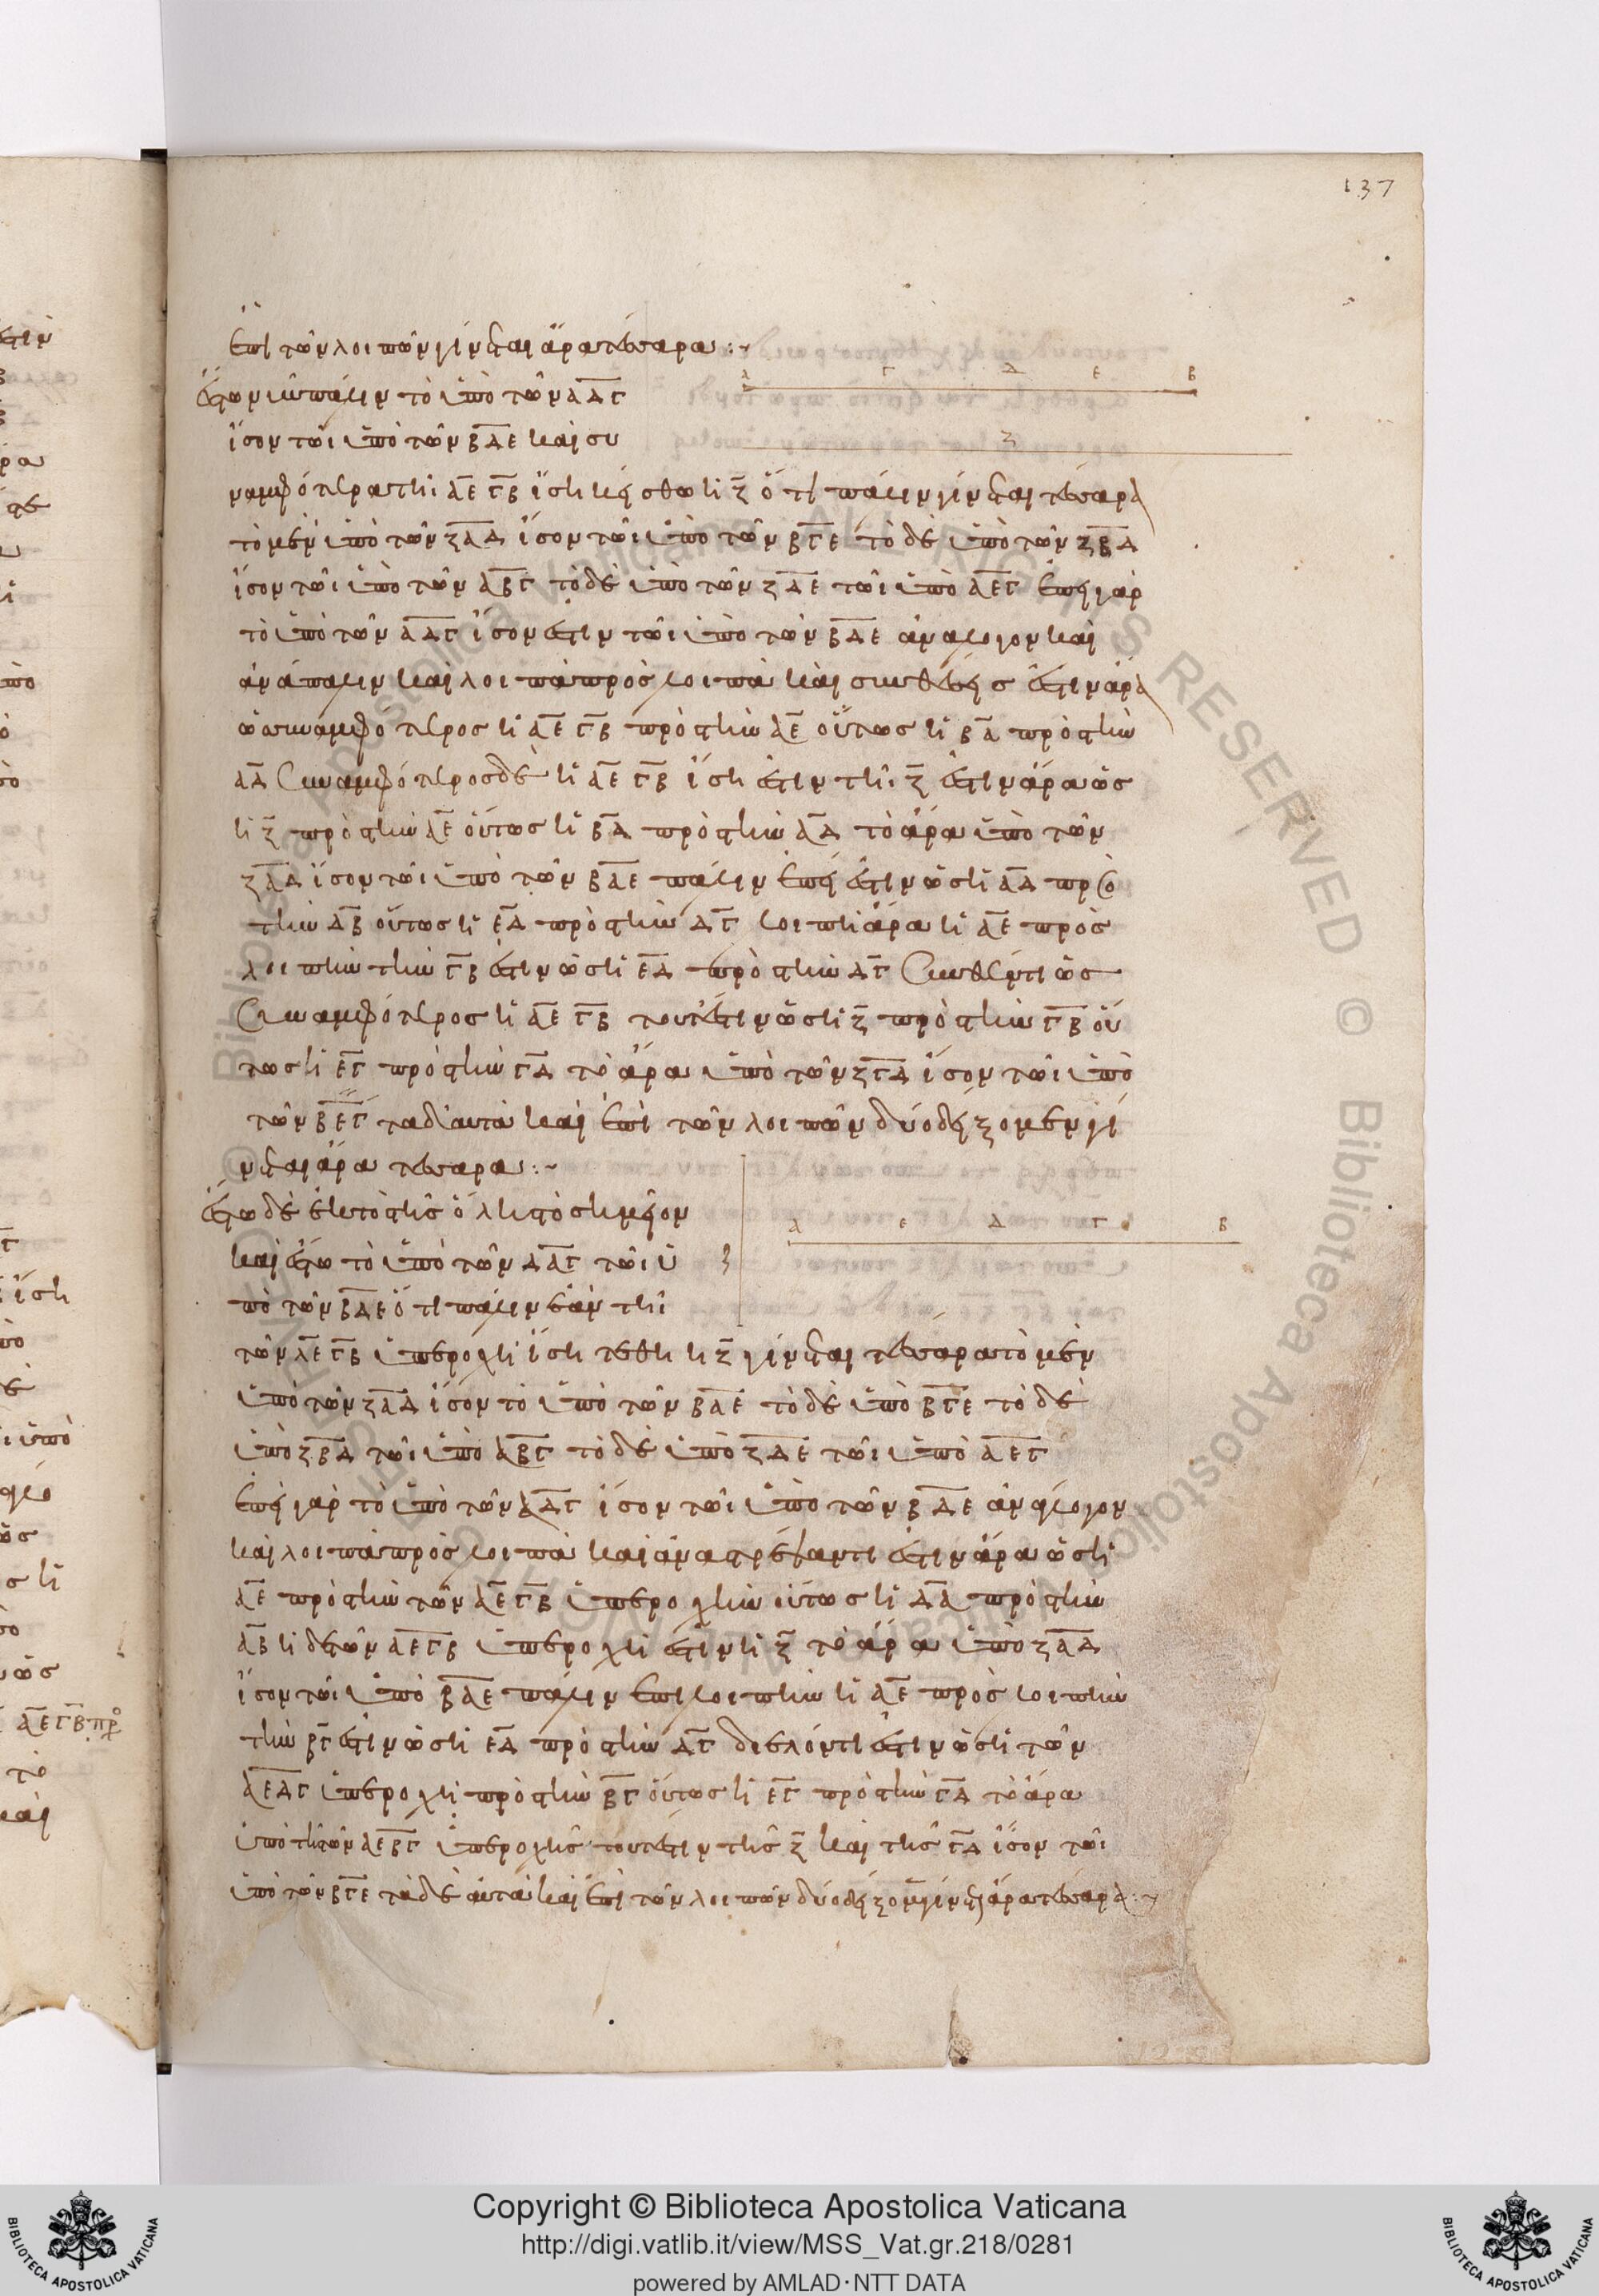 137
ἐπὶ τῶν λοιπῶν γίνεται ἄρα τέσσαρα :~
Α Γ Δ Ε Β
ἔστω νῦν πάλιν τὸ ὑπὸ τῶν ΑΔΓ
ἴσον τῶι ὑπὸ τῶν ΒΔΕ καὶ συ
Ζ
ναμφότεραι τῆι ΑΕ ΓΒ ἴση κείσθω ἡ Ζ ὅτι πάλιν γίνεται τέσσαρα
τὸ μὲν ὑπὸ τῶν ΖΑΔ ἴσον τῶι ὑπὸ τῶν ΒΓΕ τὸ δὲ ὑπὸ τῶν ΖΒΔ
ἴσον τῶι ὑπὸ τῶν ΑΒΓ τὸ δὲ ὑπὸ τῶν ΖΔΕ τῶι ὑπὸ ΑΕΓ ἐπεὶ γὰρ
τὸ ὑπὸ τῶν ΑΔΓ ἴσον ἐστὶν τῶι ὑπὸ τῶν ΒΔΕ ἀνάλογον καὶ
ἀνάπαλιν καὶ λοιπὰ πρὸς λοιπὰ καὶ συνθέσεισ ἔστιν ἄρα
ὡσ συναμφότεροσ ἡ ΑΕ ΓΒ πρὸσ τὴν ΑΕ οὕτωσ ἡ ΒΑ πρὸσ τὴν
ΑΔ συναμφότεροσ δὲ ἡ ΑΕ ΓΒ ἴση ἐστὶν τῆι Ζ ἔστιν ἄρα ὡσ
ἡ Ζ πρὸσ τὴν ΑΕ οὕτωσ ἡ ΒΔ πρὸσ τὴν ΑΔ τὸ ἄρα ὑπὸ τῶν
ΖΑΔ ἴσον τῶι ὑπὸ τῶν ΒΑΕ πάλιν ἐπεί ἐστιν ὡσ ἡ ΑΔ πρὸ
τὴν ΔΒ οὕτωσ ἡ ΕΔ πρὸσ τὴν ΔΓ λοιπὴ ἄρα ἡ ΑΕ πρὸσ
λοιπὴν τὴν ΓΒ ἐστιν ὡσ ἡ ΕΔ πρὸσ τὴν ΔΓ συνθέντι ὡσ
συναμφότεροσ ἡ ΑΕ ΓΒ τουτέστιν ὡσ ἡ Ζ πρὸσ τὴν ΓΒ οὕ
τωσ ἡ ΕΓ πρὸσ τὴν ΓΔ τὸ ἄρα ὑπὸ τῶν ΖΓΔ ἴσον τῶι ὑπὸ
τῶν ΒΕΓ τὰ δ' αὐτὰ καὶ ἐπὶ τῶν λοιπῶν δύο δείξομεν γί
νεται ἄρα τέσσαρα :~
ἔστω δὲ ἐκτὸσ τῆσ ὅλησ τὸ σημεῖον
Α Ε Δ Γ Β
καὶ ἔστω τὸ ὑπὸ τῶν ΔΑΓ τῶι ὑ
Ζ
πὸ τῶν ΒΔΕ ὅτι πάλιν ἐὰν τῆι
τῶν ΑΕ ΓΒ ὑπεροχῆι ἴση τεθῆ ἡ Ζ γίνεται τέσσαρα τὸ μὲν
ὑπὸ τῶν ΖΑΔ ἴσον τὸ ὑπὸ τῶν ΒΑΕ τὸ δὲ ὑπὸ ΒΓΕ τὸ δὲ
ὑπὸ ΖΒΔ τῶι ὑπὸ ΑΒΓ τὸ δὲ ὑπὸ ΖΔΕ τῶι ὑπὸ ΑΕΓ
ἐπεὶ γὰρ τὸ ὑπὸ τῶν ΑΔΓ ἴσον τῶι ὑπὸ τῶν ΒΔΕ ἀνάλογον
καὶ λοιπὰ πρὸσ λοιπὰ καὶ ἀναστρέψαντι ἔστιν ἄρα ὡσ ἡ
ΑΕ πρὸσ τὴν τῶν ΑΕ ΓΒ ὑπεροχὴν οὕτωσ ἡ ΔΑ πρὸσ τὴν
ΑΒ ἡ δὲ τῶν ΑΕ ΓΒ ὑπεροχή ἐστιν ἡ Ζ τὸ ἄρα ὑπὸ ΖΑΔ
ἴσον τῶι ὑπὸ ΒΑΕ πάλιν ἐπεὶ λοιπὴν ἡ ΑΕ πρὸσ λοιπὴν
τὴν ΒΓ ἐστιν ὡσ ἡ ΕΔ πρὸσ τὴν ΔΓ διελόντι ἐστιν ὡσ ἡ τῶν
ΑΕ ΔΓ ὑπεροχὴ πρὸσ τὴν ΒΓ οὕτωσ ἡ ΕΓ πρὸσ τὴν ΓΔ τὸ ἄρα
ὑπὸ τῆσ τῶν ΑΕ ΒΓ ὑπεροχῆσ τουτέστιν τῆσ Ζ καὶ τῆσ ΓΔ ἴσον τῶι
ὑπὸ τῶν ΒΓΕ τὰ δὲ αὐτὰ καὶ ἐπὶ τῶν λοιπῶν δύο δείξομεν γίνεται ἄρα τέσσαρα :~
Copyright © Biblioteca Apostolica Vaticana
http://digi.vatlib.it/view/MSS_Vat.gr.218/0281
powered by AMLAD·NTT DATA